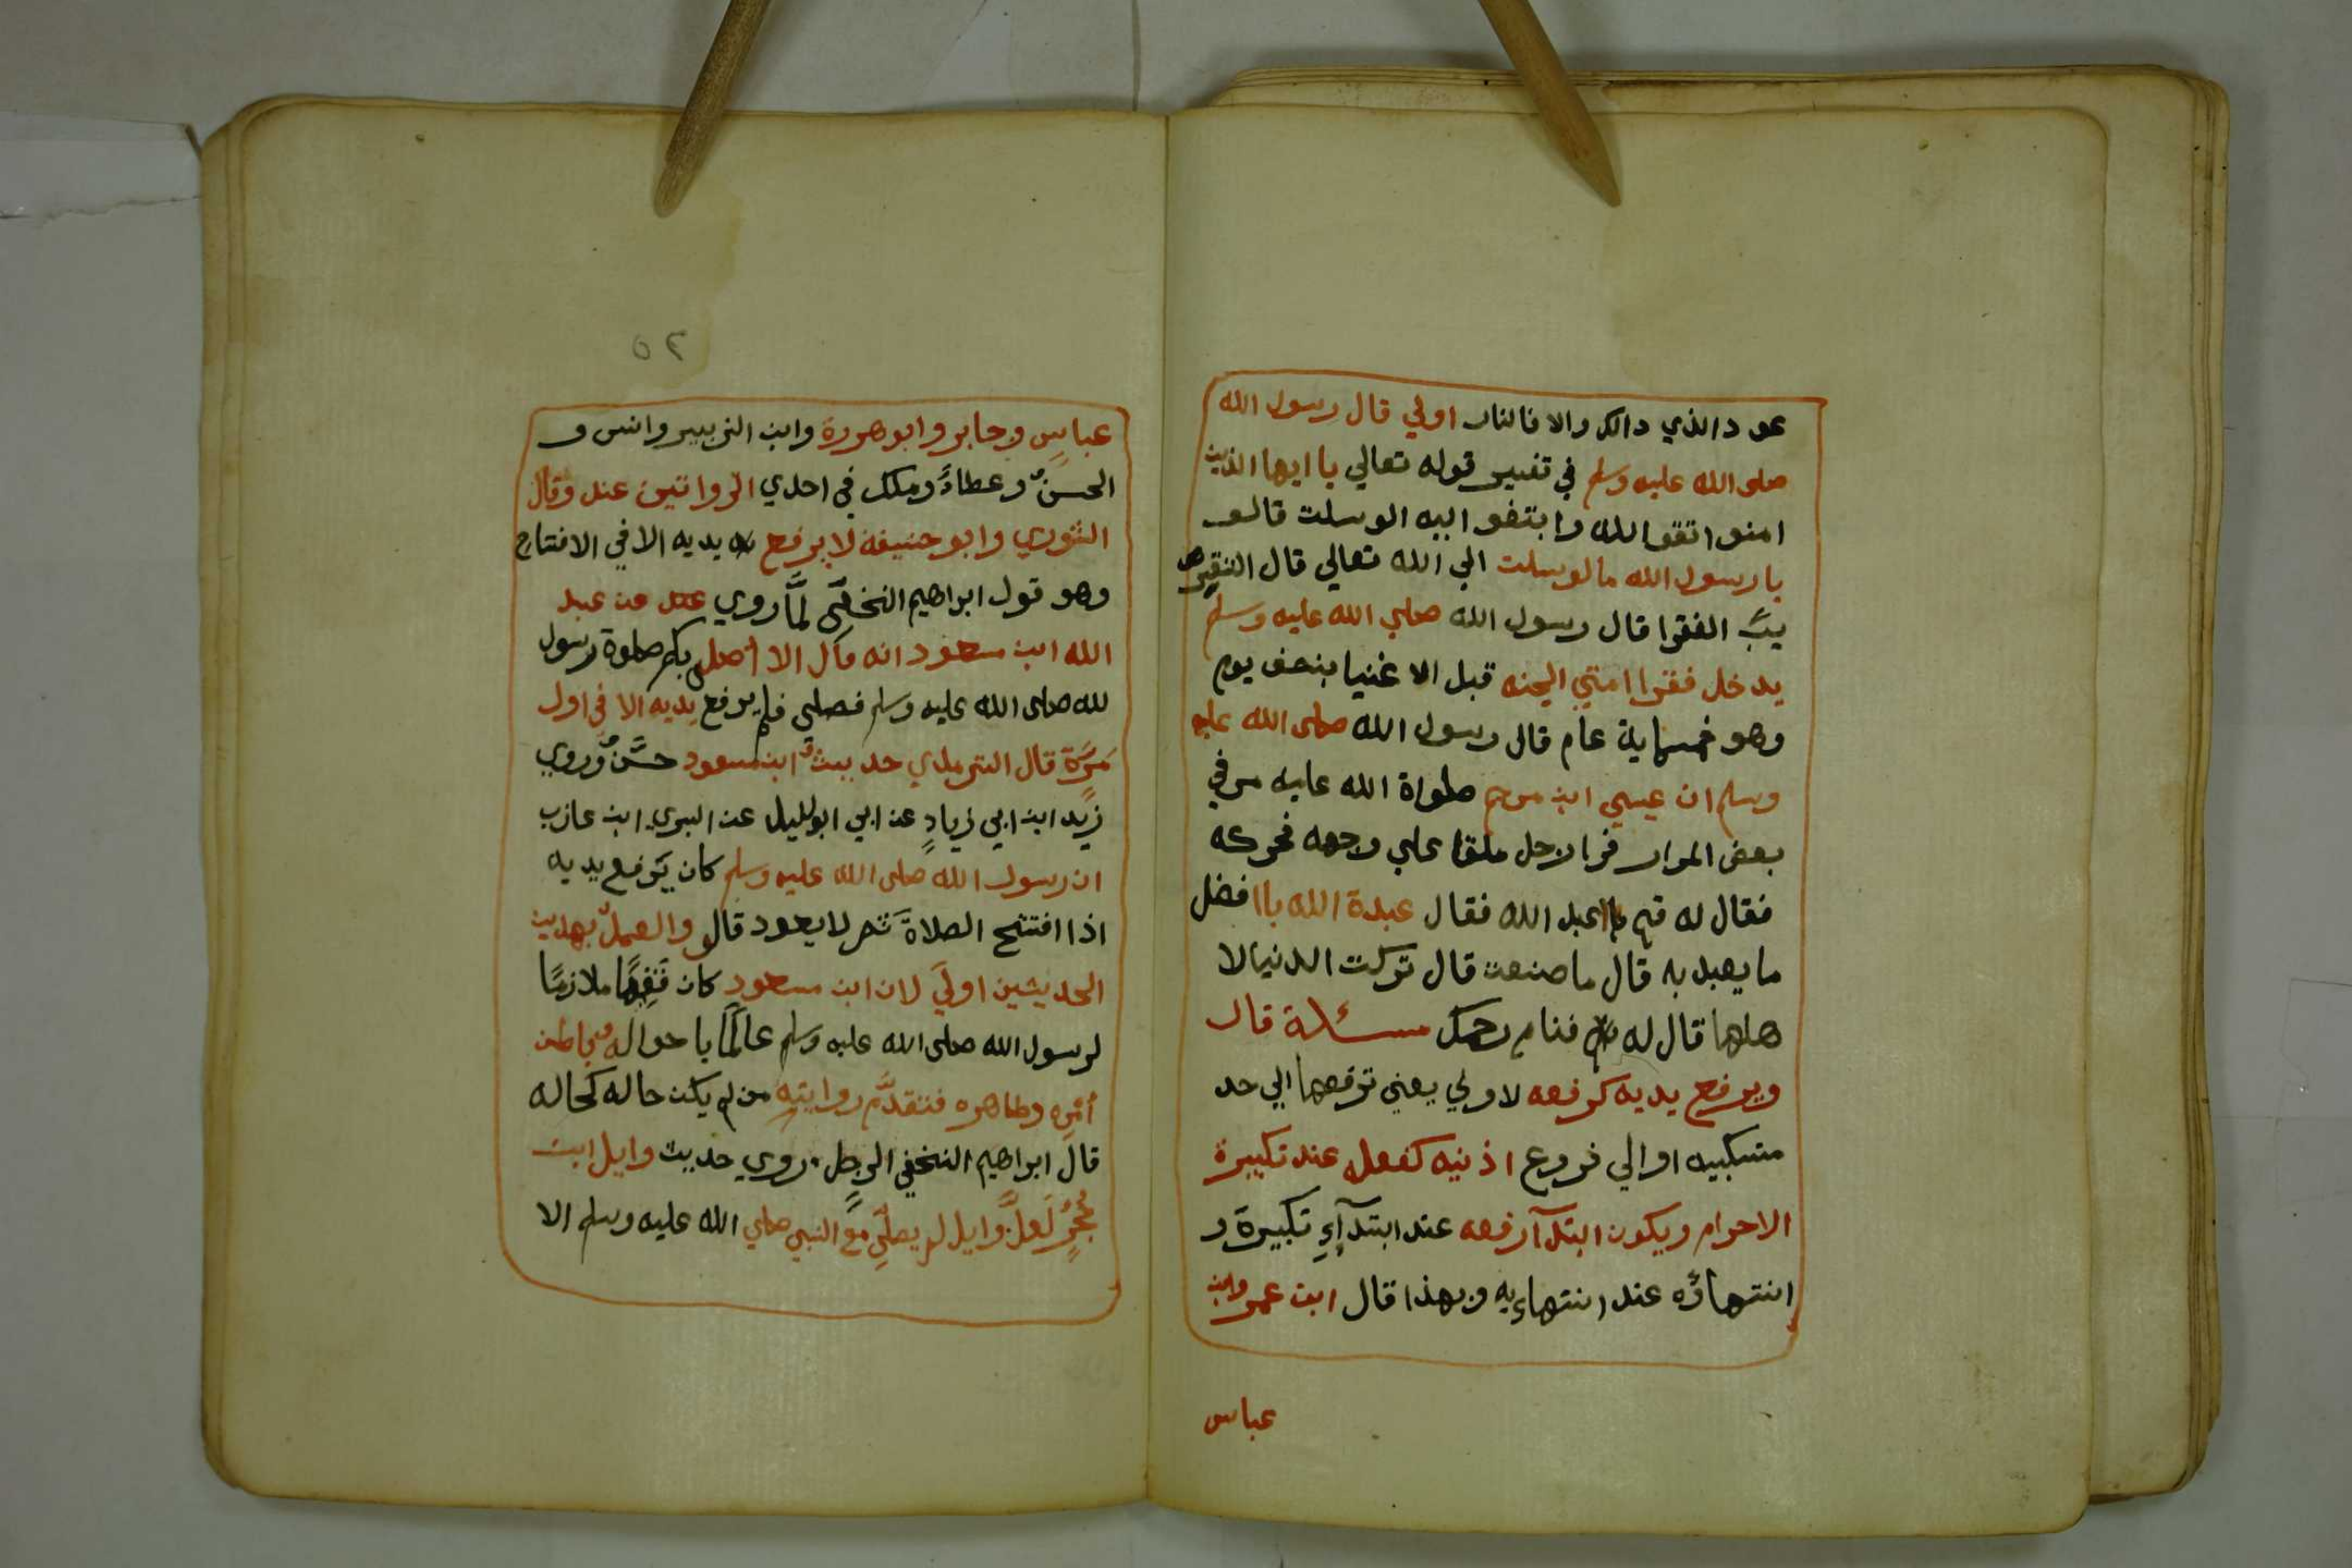 عود الذي دالك والا فالنار اولي قال رسول الله
صلى الله عليه وسلم في تفسير قوله تعالي يا ايها الذين
امنوا اتقوا الله وابتغو اليه الوسلت قالو
يا رسول الله مالوسلت الي الله تعالي قال التقرب
الفقرا قال رسول الله صلي الله عليه وسلم
يدخل فقرا امتي الجنه قبل الاغنيا بنصف يوم
وهو خمسماية عام قال رسول الله صلى الله عليه
وسلم ان عيسي ابن مريم صلواة الله عليه مر في
بعض المرار فرا رجل ملقا علي وجهه فحركه
فقال له قم يا عبد الله فقال عبدة الله باافضل
ما يعبد به قال ما صنعت قال تركت الدنيا لا
هلها قال له فنام رحمك مسئلة قال
ويرفع يديه كرفعه لاولي يعني ترفعهما الي حد
منكبيه او الي فروع اذنيه كفعله عند تكبيرة
الاحرام ويكون ابتدآ رفعه عند ابتدآءِ تكبيرة و
انتهاؤه عند انتهاءيه وبهذا قال ابن عمر وابن
عباس
٥٢
عباسٍ وجابر وابو هررة وابن الزبير وانس و
الحسنُ وعطاءً ومكك في احدي الرواتين عند وقال
الثوري وابو حنيفة لا يرفع يديه الا في الافتتاح
وهو قول ابراهيم النخعي لمَّا روي عن عبد
الله ابن مسعود انه قال الا أصلى بكم صلوة رسول
لله صلى الله عليه وسلم فصلى فلم يرفع يديه الا في اول
مَرَّة قال الترمذي حديث ابن مسعود حسَّنٌ وروي
زيد ابن ابي زيادٍ عن ابي ابوليل عن البري ابن عازب
ان رسول الله صلى الله عليه وسلم كان يَرفع يديه
اذا افتتح الصلاةَ ثم لا يعود قالو والعمل بهدين
الحديثين اوليَ لان ابن مسعود كان فَقِهًا ملازمًا
لرسول الله صلى الله عليه وسلم عالمًا باحواله وباطن
أمره وظاهره فتقدَّم روايته من لم يكن حاله كحاله
قال ابراهيم النخعي الرجل روي حديث وايل ابن
حُجرٍ لعلَّ وايل لم يصلي مع النبي صلي الله عليه وسلم الا